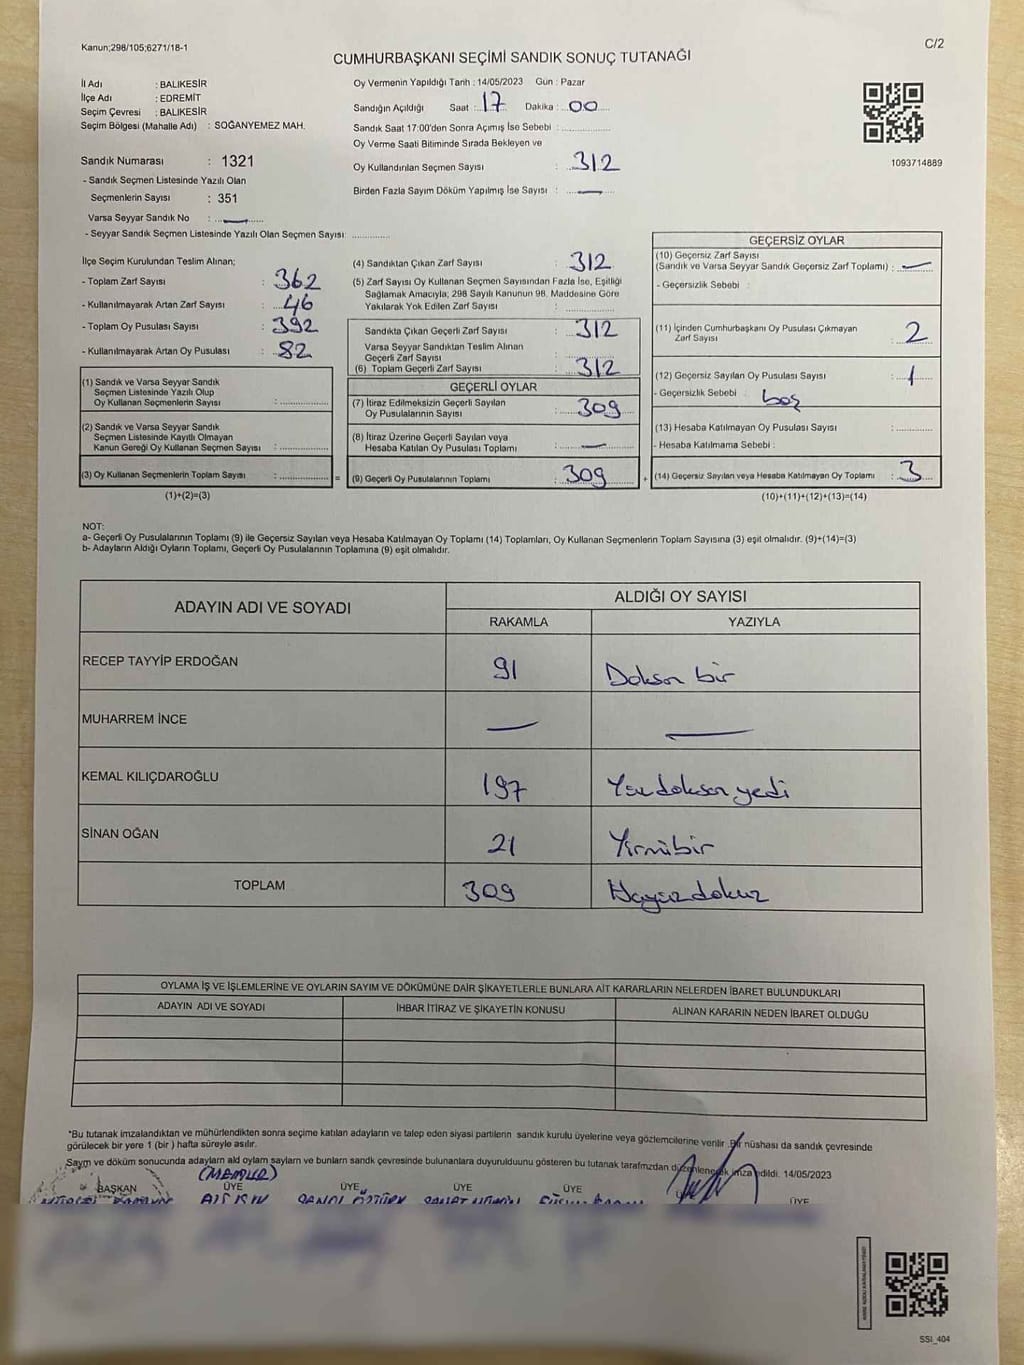 Kanun;298/105;6271/18-1
C/2
CUMHURBAŞKANI SEÇİMİ SANDIK SONUÇ TUTANAĞI
İl Adı : BALIKESİR
İlçe Adı : EDREMİT
Seçim Çevresi : BALIKESİR
Seçim Bölgesi (Mahalle Adı) : SOĞANYEMEZ MAH.
Oy Vermenin Yapıldığı Tarih : 14/05/2023 Gün : Pazar
Sandığın Açıldığı Saat : 17 Dakika : 00
Sandık Saat 17:00'den Sonra Açımış İse Sebebi :
Oy Verme Saati Bitiminde Sırada Bekleyen ve
Oy Kullandırılan Seçmen Sayısı : 312
Birden Fazla Sayım Döküm Yapılmış İse Sayısı : —
1093714889
Sandık Numarası : 1321
- Sandık Seçmen Listesinde Yazılı Olan
Seçmenlerin Sayısı : 351
Varsa Seyyar Sandık No : —
- Seyyar Sandık Seçmen Listesinde Yazılı Olan Seçmen Sayısı:
İlçe Seçim Kurulundan Teslim Alınan;
- Toplam Zarf Sayısı : 362
- Kullanılmayarak Artan Zarf Sayısı : 46
- Toplam Oy Pusulası Sayısı : 392
- Kullanılmayarak Artan Oy Pusulası : 82
(1) Sandık ve Varsa Seyyar Sandık
Seçmen Listesinde Yazılı Olup
Oy Kullanan Seçmenlerin Sayısı :
(2) Sandık ve Varsa Seyyar Sandık
Seçmen Listesinde Kayıtlı Olmayan
Kanun Gereği Oy Kullanan Seçmen Sayısı :
(3) Oy Kullanan Seçmenlerin Toplam Sayısı :
(1)+(2)=(3)
(4) Sandıktan Çıkan Zarf Sayısı : 312
(5) Zarf Sayısı Oy Kullanan Seçmen Sayısından Fazla İse, Eşitliği
Sağlamak Amacıyla; 298 Sayılı Kanunun 98. Maddesine Göre
Yakılarak Yok Edilen Zarf Sayısı :
Sandıkta Çıkan Geçerli Zarf Sayısı : 312
Varsa Seyyar Sandıktan Teslim Alınan
Geçerli Zarf Sayısı :
(6) Toplam Geçerli Zarf Sayısı : 312
GEÇERLİ OYLAR
(7) İtiraz Edilmeksizin Geçerli Sayılan
Oy Pusulalarının Sayısı : 309
(8) İtiraz Üzerine Geçerli Sayılan veya
Hesaba Katılan Oy Pusulası Toplamı : —
(9) Geçerli Oy Pusulalarının Toplamı : 309
GEÇERSİZ OYLAR
(10) Geçersiz Zarf Sayısı
(Sandık ve Varsa Seyyar Sandık Geçersiz Zarf Toplamı) : —
- Geçersizlik Sebebi :
(11) İçinden Cumhurbaşkanı Oy Pusulası Çıkmayan
Zarf Sayısı : 2
(12) Geçersiz Sayılan Oy Pusulası Sayısı : 1
- Geçersizlik Sebebi : boş
(13) Hesaba Katılmayan Oy Pusulası Sayısı :
- Hesaba Katılmama Sebebi :
(14) Geçersiz Sayılan veya Hesaba Katılmayan Oy Toplamı : 3
(10)+(11)+(12)+(13)=(14)
NOT:
a- Geçerli Oy Pusulalarının Toplamı (9) ile Geçersiz Sayılan veya Hesaba Katılmayan Oy Toplamı (14) Toplamları, Oy Kullanan Seçmenlerin Toplam Sayısına (3) eşit olmalıdır. (9)+(14)=(3)
b- Adayların Aldığı Oyların Toplamı, Geçerli Oy Pusulalarının Toplamına (9) eşit olmalıdır.
ADAYIN ADI VE SOYADI
ALDIĞI OY SAYISI
RAKAMLA YAZIYLA
RECEP TAYYİP ERDOĞAN 91 Doksan bir
MUHARREM İNCE — —
KEMAL KILIÇDAROĞLU 197 Yüzdoksan yedi
SİNAN OĞAN 21 Yirmibir
TOPLAM 309 Üçyüzdokuz
OYLAMA İŞ VE İŞLEMLERİNE VE OYLARIN SAYIM VE DÖKÜMÜNE DAİR ŞİKAYETLERLE BUNLARA AİT KARARLARIN NELERDEN İBARET BULUNDUKLARI
ADAYIN ADI VE SOYADI İHBAR İTİRAZ VE ŞİKAYETİN KONUSU ALINAN KARARIN NEDEN İBARET OLDUĞU
*Bu tutanak imzalandıktan ve mühürlendikten sonra seçime katılan adayların ve talep eden siyasi partilerin sandık kurulu üyelerine veya gözlemcilerine verilir. Bir nüshası da sandık çevresinde
görülecek bir yere 1 (bir ) hafta süreyle asılır.
Sayım ve döküm sonucunda adayların ald oylam sayların ve bunların sandk çevresinde bulunanlara duyurulduunu gösteren bu tutanak tarafımızdan düzenlenerek imza edildi. 14/05/2023
(MEMUR)
BAŞKAN ÜYE ÜYE ÜYE ÜYE ÜYE
SSI_404